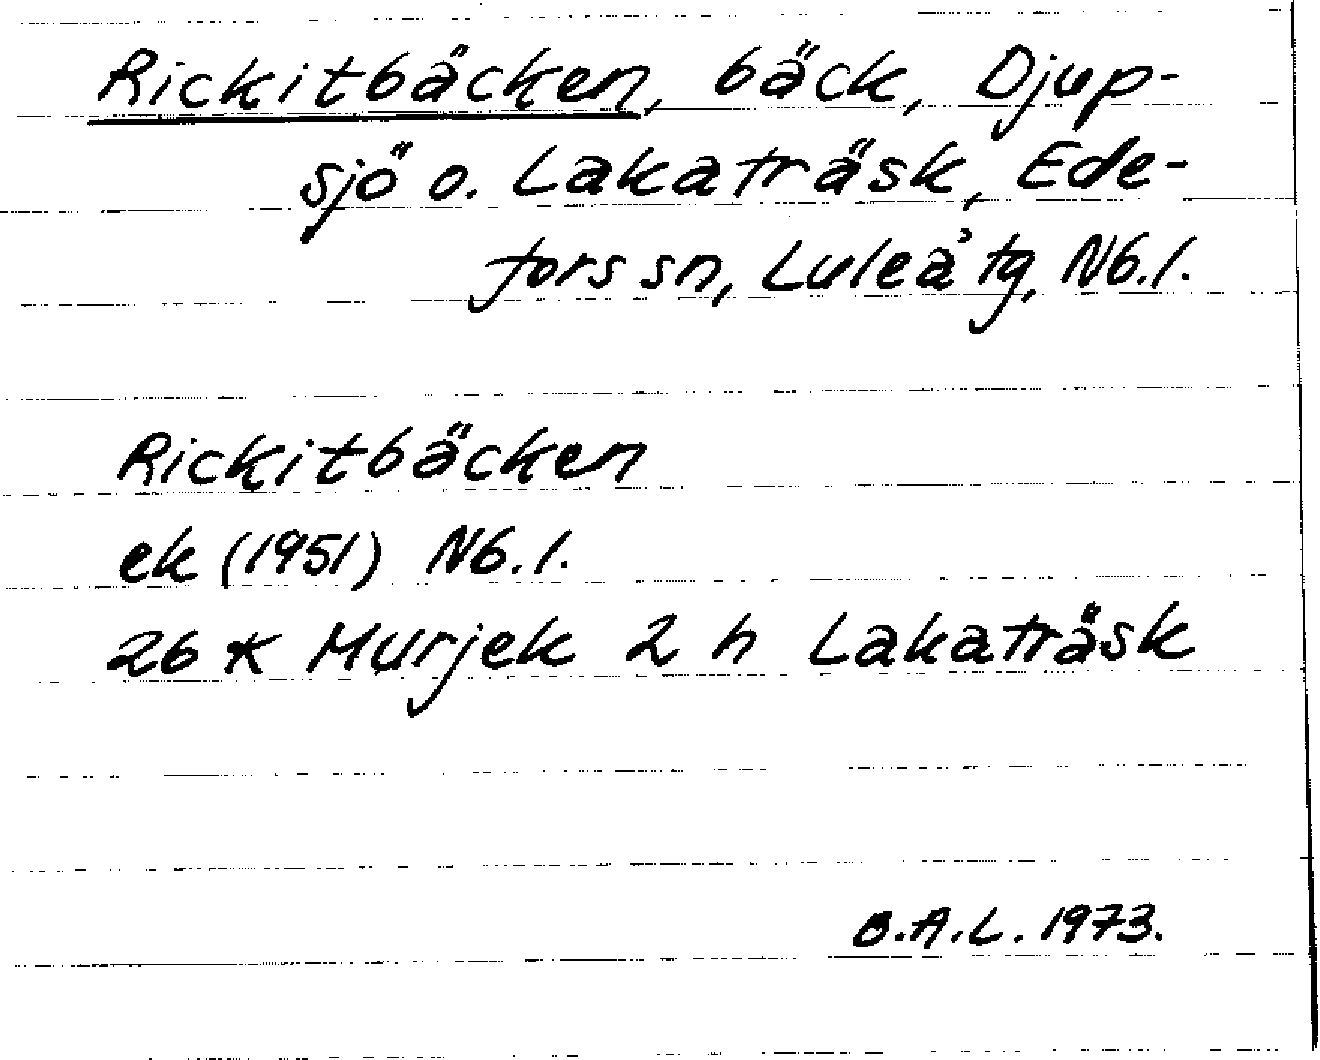 Rickitbäcken, bäck, Djup-
sjö o. Lakaträsk, Ede-
fors sn, Luleå tg, Nb.l.
Rickitbäcken
ek (1951) Nb.l.
26 K Murjek 2 h Lakaträsk
B.A.L. 1973.